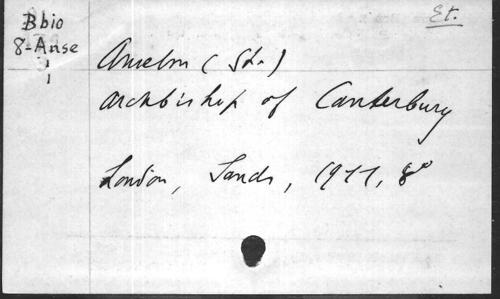 Bbio
8-Anse
Et.
Anselm (St.)
Archbishop of Canterbury
London, Sands, 1977, 8º